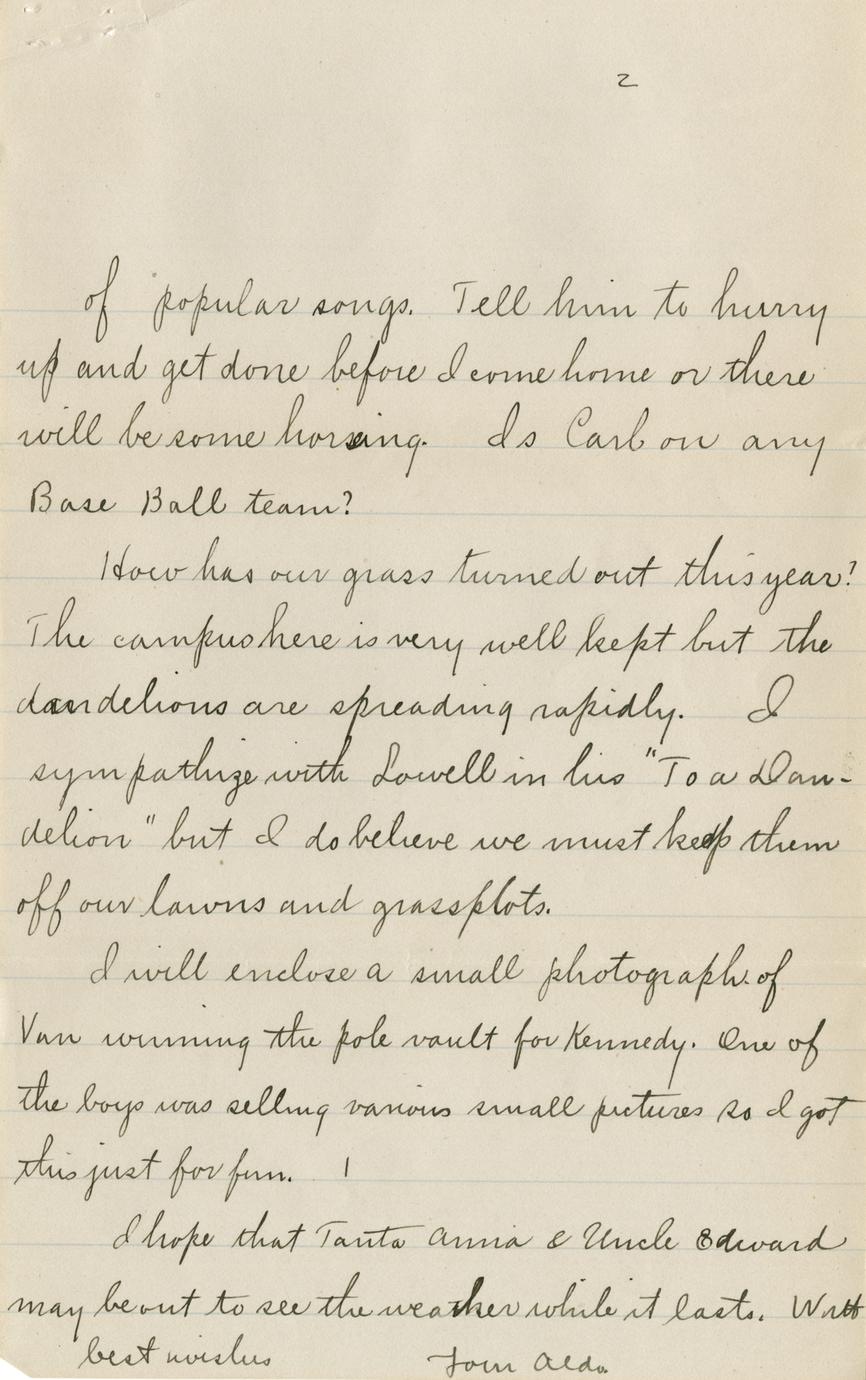 2
of popular songs. Tell him to hurry
up and get done before I come home or there
will be some horsing. Is Carl on any
Base Ball team?
How has our grass turned out this year?
The campus here is very well kept but the
dandelions are spreading rapidly. I
sympathize with Lowell in his "To a Dan-
delion" but I do believe we must keep them
off our lawns and grassplots.
I will enclose a small photograph of
Van winning the pole vault for Kennedy. One of
the boys was selling various small pictures so I got
this just for fun.
I hope that Tanta Anna & Uncle Edward
may be out to see the weather while it lasts. With
best wishes Your Aldo.